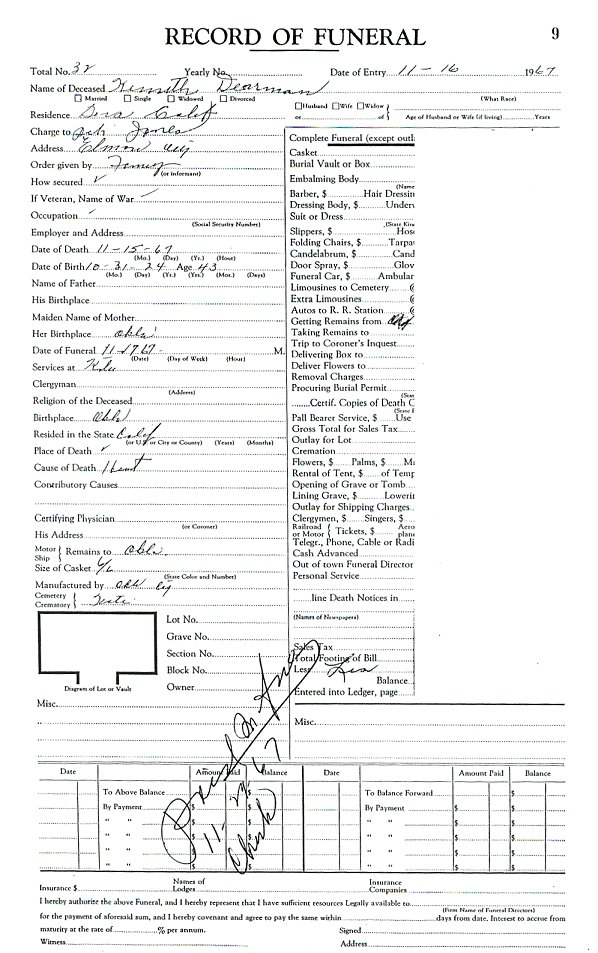 RECORD OF FUNERAL
9
Total No. 32 Yearly No. Date of Entry 11-16 1967
Name of Deceased Kenneth Dearman
Married Single Widowed Divorced (What Race)
Residence Calif
Husband Wife Widow
or of Age of Husband or Wife (if living) Years
Charge to Jones
Address Elmore City
Order given by Family
(or informant)
How secured
If Veteran, Name of War
Occupation
(Social Security Number)
Employer and Address
Date of Death 11-15-67
(Mo.) (Day) (Yr.) (Hour)
Date of Birth 10-31-24 Age 43
(Mo.) (Day) (Yr.) (Yrs.) (Mo.) (Days)
Name of Father
His Birthplace
Maiden Name of Mother
Her Birthplace Okla
Date of Funeral 11-1767 M.
(Date) (Day of Week) (Hour)
Services at
Clergyman
(Address)
Religion of the Deceased
Birthplace Okla
Resided in the State Calif
(or U.S. or City or County) (Years) (Months)
Place of Death
Cause of Death Heart
Contributory Causes
Certifying Physician
(or Coroner)
His Address
Motor Ship Remains to Okla.
Size of Casket 6/6
(State Color and Number)
Manufactured by Okla City
Cemetery Crematory
Lot No.
Grave No.
Section No.
Block No.
Owner
Diagram of Lot or Vault
Misc.
Complete Funeral (except outl
Casket
Burial Vault or Box
Embalming Body
(Name
Barber, $ Hair Dressin
Dressing Body, $ Underw
Suit or Dress
(State Kind
Slippers, $ Hos
Folding Chairs, $ Tarpa
Candelabrum, $ Cand
Door Spray, $ Glov
Funeral Car, $ Ambular
Limousines to Cemetery @
Extra Limousines @
Autos to R. R. Station @
Getting Remains from
Taking Remains to
Trip to Coroner's Inquest
Delivering Box to
Deliver Flowers to
Removal Charges
Procuring Burial Permit
(State
Certif. Copies of Death C
(State
Pall Bearer Service, $ Use
Gross Total for Sales Tax
Outlay for Lot
Cremation
Flowers, $ Palms, $ Ma
Rental of Tent, $ of Temp
Opening of Grave or Tomb
Lining Grave, $ Lowerin
Outlay for Shipping Charges
Clergymen, $ Singers, $
Railroad or Motor Tickets, $ Aero plane
Telegr., Phone, Cable or Radi
Cash Advanced
Out of town Funeral Director
Personal Service
line Death Notices in
(Names of Newspapers)
Sales Tax
Total Footing of Bill
Less
Balance
Entered into Ledger, page
Misc.
11-
67
Check
Date Amount Paid Balance Date Amount Paid Balance
To Above Balance $ To Balance Forward $
By Payment $ By Payment $
" " $ " " $
" " $ " " $
" " $ " " $
" " $ " " $
Insurance $ Names of Lodges Insurance Companies
I hereby authorize the above Funeral, and I hereby represent that I have sufficient resources Legally available to
(Firm Name of Funeral Directors)
for the payment of aforesaid sum, and I hereby covenant and agree to pay the same within days from date. Interest to accrue from
maturity at the rate of % per annum. Signed
Witness Address